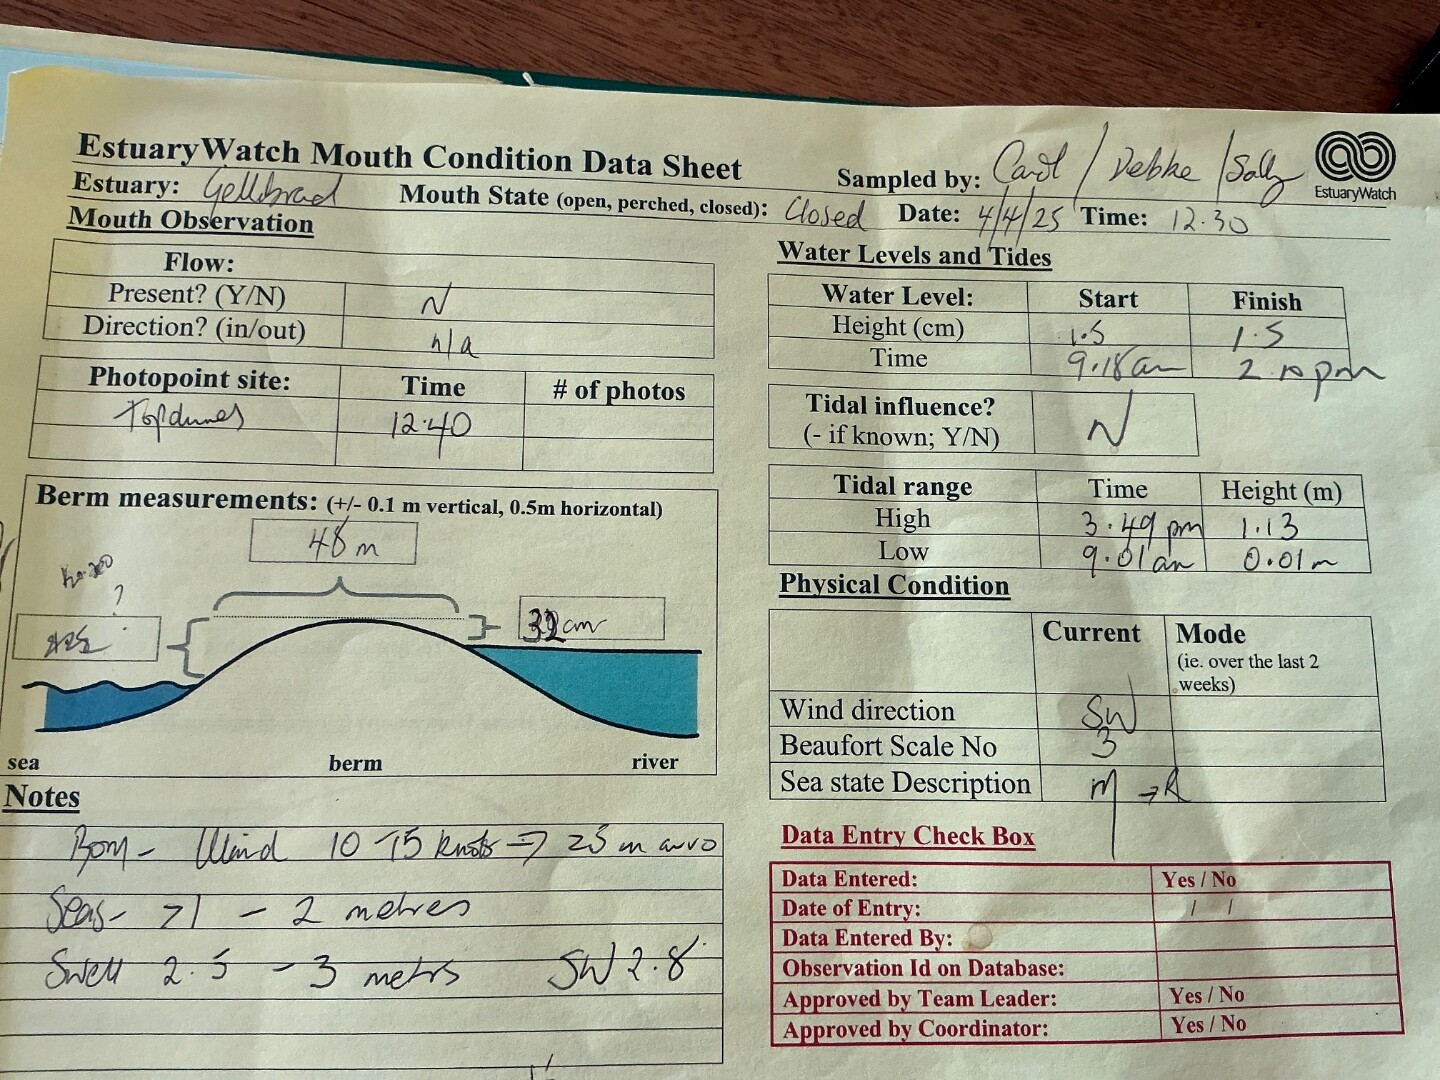 EstuaryWatch Mouth Condition Data Sheet
Sampled by: Carol / Debbie / Sally
EstuaryWatch
Estuary: Gellibrand Mouth State (open, perched, closed): Closed Date: 4/4/25 Time: 12.30
Mouth Observation
Flow:
Present? (Y/N) N
Direction? (in/out) n/a
Photopoint site: Time # of photos
Top dunes 12.40
Berm measurements: (+/- 0.1 m vertical, 0.5m horizontal)
48 m
?
cm
sea berm river
Notes
Bom - Wind 10-15 knots → 25 m
Seas - >1 - 2 metres
Swell 2.5 - 3 metrs SW 2.8
Water Levels and Tides
Water Level: Start Finish
Height (cm) 1.5 1.5
Time 9.18 am 2.10 pm
Tidal influence? N
(- if known; Y/N)
Tidal range Time Height (m)
High 3.49 pm 1.13
Low 9.01 am 0.01 m
Physical Condition
Current Mode
(ie. over the last 2
weeks)
Wind direction SW
Beaufort Scale No 3
Sea state Description M → R
Data Entry Check Box
Data Entered: Yes / No
Date of Entry: / /
Data Entered By:
Observation Id on Database:
Approved by Team Leader: Yes / No
Approved by Coordinator: Yes / No